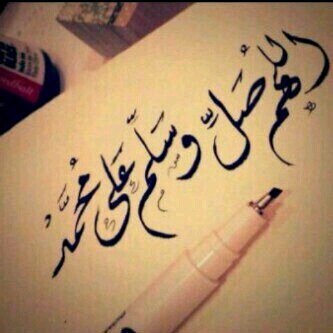 اللهم صَلِّ وسَلِّم عَلى مُحمَّد